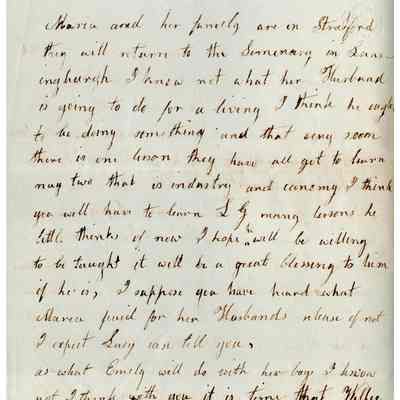 Maria and her family are in Stratford
they will return to the Seminary in Lans-
inghurgh I know not what her Husband
is going to do for a living I think he ought
to be doing something and that very soon
there is one lesson they have all got to learn
nay two that is industry and economy I think
you will have to learn L G many lessons he
little thinks of now I hope he will be willing
to be taught it will be a great blessing to him
if he is, I suppose you have heard what
Maria paid for her Husbands release if not
I expect Lucy can tell you,
as what Emely will do with her boys I know
not I think with you it is time that Willie